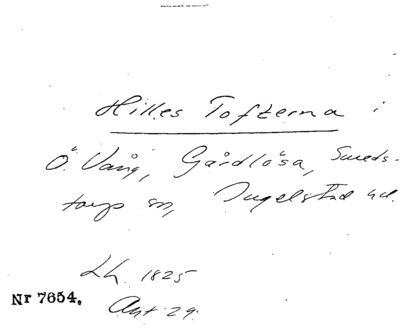 Hilles Tofterna i
Ö. Vång, Gårdlösa, Smeds-
torps sn, Ingelstad hd.
Lh. 1825
Nr 7654. Akt 29.